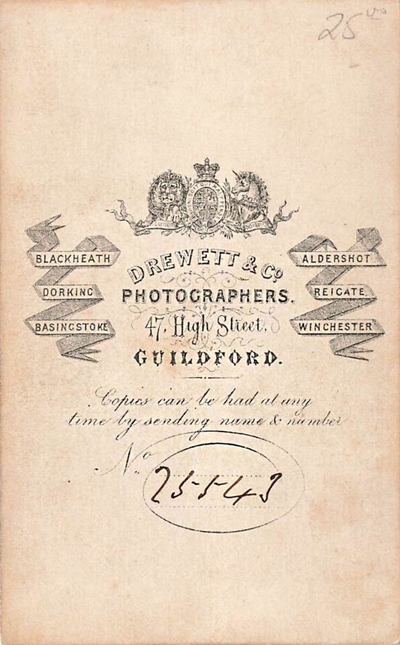 25
DREWETT & Co
PHOTOGRAPHERS.
47, High Street,
GUILDFORD.
BLACKHEATH
DORKING
BASINGSTOKE
ALDERSHOT
REIGATE
WINCHESTER
Copies can be had at any
time by sending name & number
No 25543